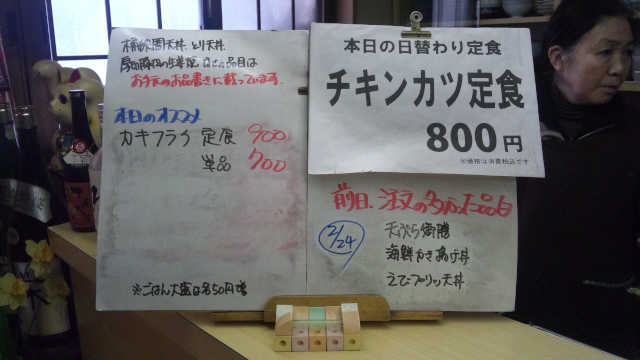 とり天丼
の品目は
お手元のお品書きに載っています。
本日のオススメ
カキフライ 定食 900
単品 700
※ごはん大盛は各50円増
本日の日替わり定食
チキンカツ定食
800円
※価格は消費税込です
前日、注文の多かった品
2/24
天ぷら御膳
海鮮かき揚げ丼
えびプリッ天丼